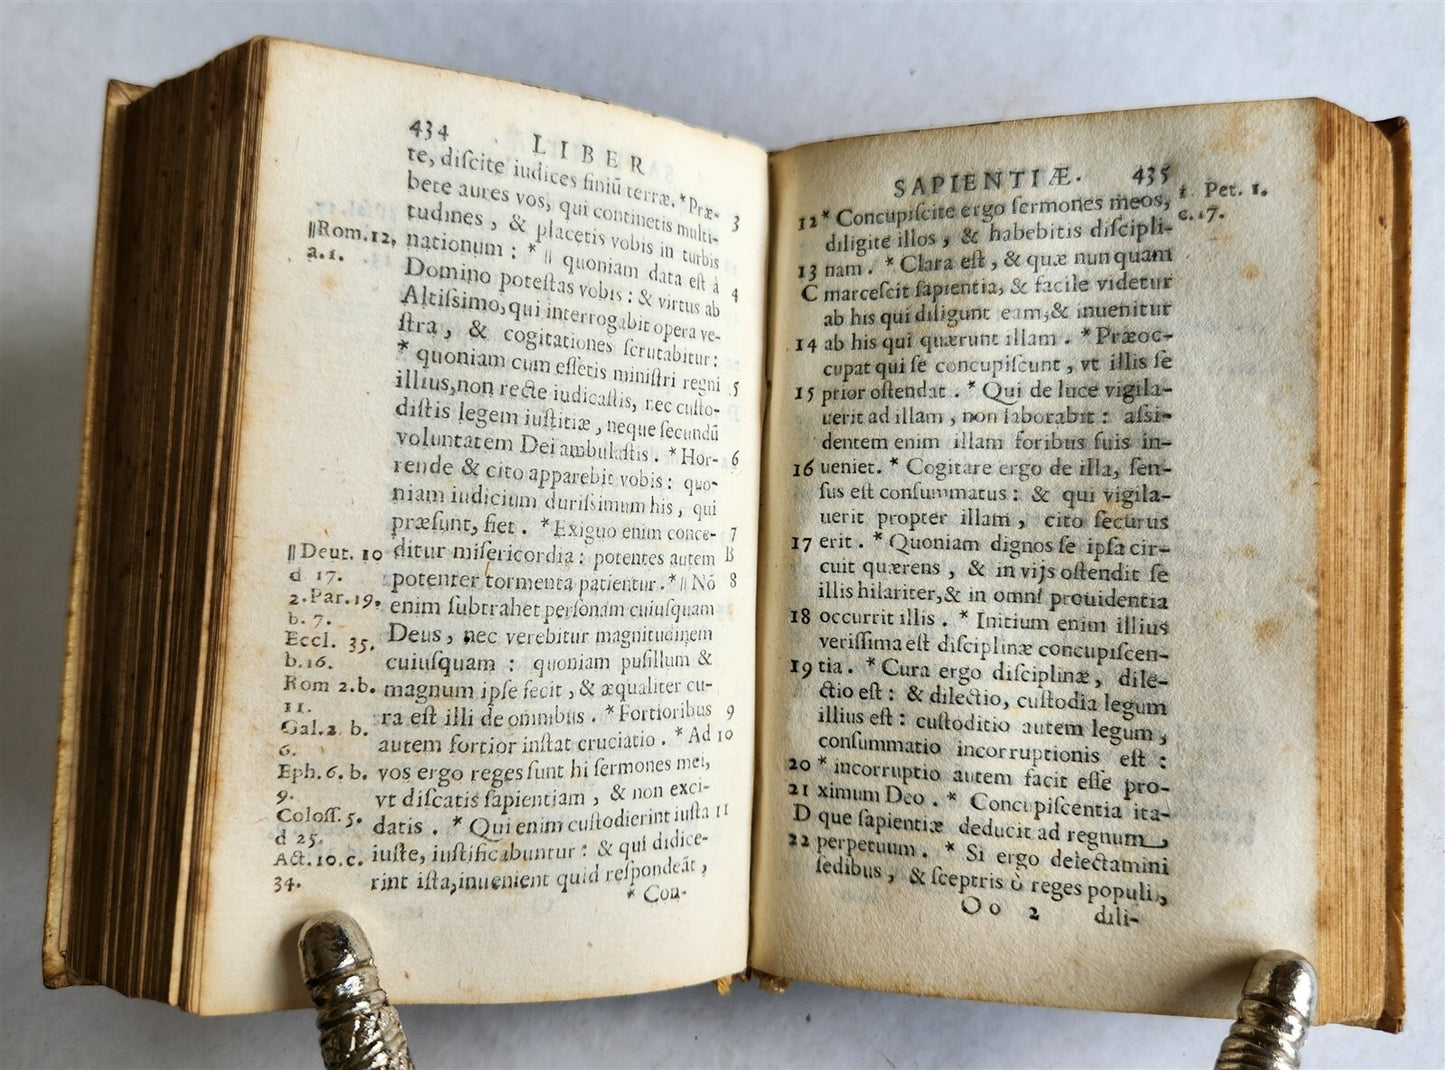 434 LIBER
te, diſcite iudices finiũ terræ. * Præ-
bete aures vos, qui continetis multi- 3
tudines, & placetis vobis in turbis
||Rom.12, nationum : * || quoniam data eſt à
a.1. Domino poteſtas vobis : & virtus ab 4
Altiſsimo, qui interrogabit opera ve-
ſtra, & cogitationes ſcrutabitur :
* quoniam cum eſſetis miniſtri regni 5
illius, non recte iudicaſtis, nec cuſto-
diſtis legem iuſtitiæ, neque ſecundũ
voluntatem Dei ambulaſtis. * Hor- 6
rende & cito apparebit vobis : quo-
niam iudicium duriſsimum his, qui
præſunt, fiet. * Exiguo enim conce- 7
||Deut. 10 ditur miſericordia : potentes autem B
d 17. potenter tormenta patientur. * || Nõ 8
2.Par.19. enim ſubtrahet perſonam cuiuſquam
b. 7. Deus, nec verebitur magnitudinem
Eccl. 35. cuiuſquam : quoniam puſillum &
b.16. magnum ipſe fecit, & æqualiter cu-
Rom 2.b. ra eſt illi de omnibus. * Fortioribus 9
11. autem fortior inſtat cruciatio. * Ad 10
Gal.2. b. vos ergo reges ſunt hi ſermones mei,
6. vt diſcatis ſapientiam, & non exci-
Eph. 6. b. datis. * Qui enim cuſtodierint iuſta 11
9. iuſte, iuſtificabuntur : & qui didice-
Coloſſ. 5. rint iſta, inuenient quid reſpondeãt,
d 25. * Con-
Act. 10. c.
34.
SAPIENTIÆ. 435
12 * Concupiſcite ergo ſermones meos, 1. Pet. 1.
diligite illos, & habebitis diſcipli- c. 17.
13 nam. * Clara eſt, & quæ nunquam
C marceſcit ſapientia, & facile videtur
ab his qui diligunt eam, & inuenitur
14 ab his qui quærunt illam. * Præoc-
cupat qui ſe concupiſcunt, vt illis ſe
15 prior oſtendat. * Qui de luce vigila-
uerit ad illam, non laborabit : aſsi-
dentem enim illam foribus ſuis in-
16 ueniet. * Cogitare ergo de illa, ſen-
ſus eſt conſummatus : & qui vigila-
uerit propter illam, cito ſecurus
17 erit. * Quoniam dignos ſe ipſa cir-
cuit quærens, & in vijs oſtendit ſe
illis hilariter, & in omni prouidentia
18 occurrit illis. * Initium enim illius
veriſsima eſt diſciplinæ concupiſcen-
19 tia. * Cura ergo diſciplinæ, dile-
ctio eſt : & dilectio, cuſtodia legum
illius eſt : cuſtoditio autem legum,
conſummatio incorruptionis eſt :
20 * incorruptio autem facit eſſe pro-
21 ximum Deo. * Concupiſcentia ita-
D que ſapientiæ deducit ad regnum
22 perpetuum. * Si ergo delectamini
ſedibus, & ſceptris ò reges populi,
Oo 2 dili-